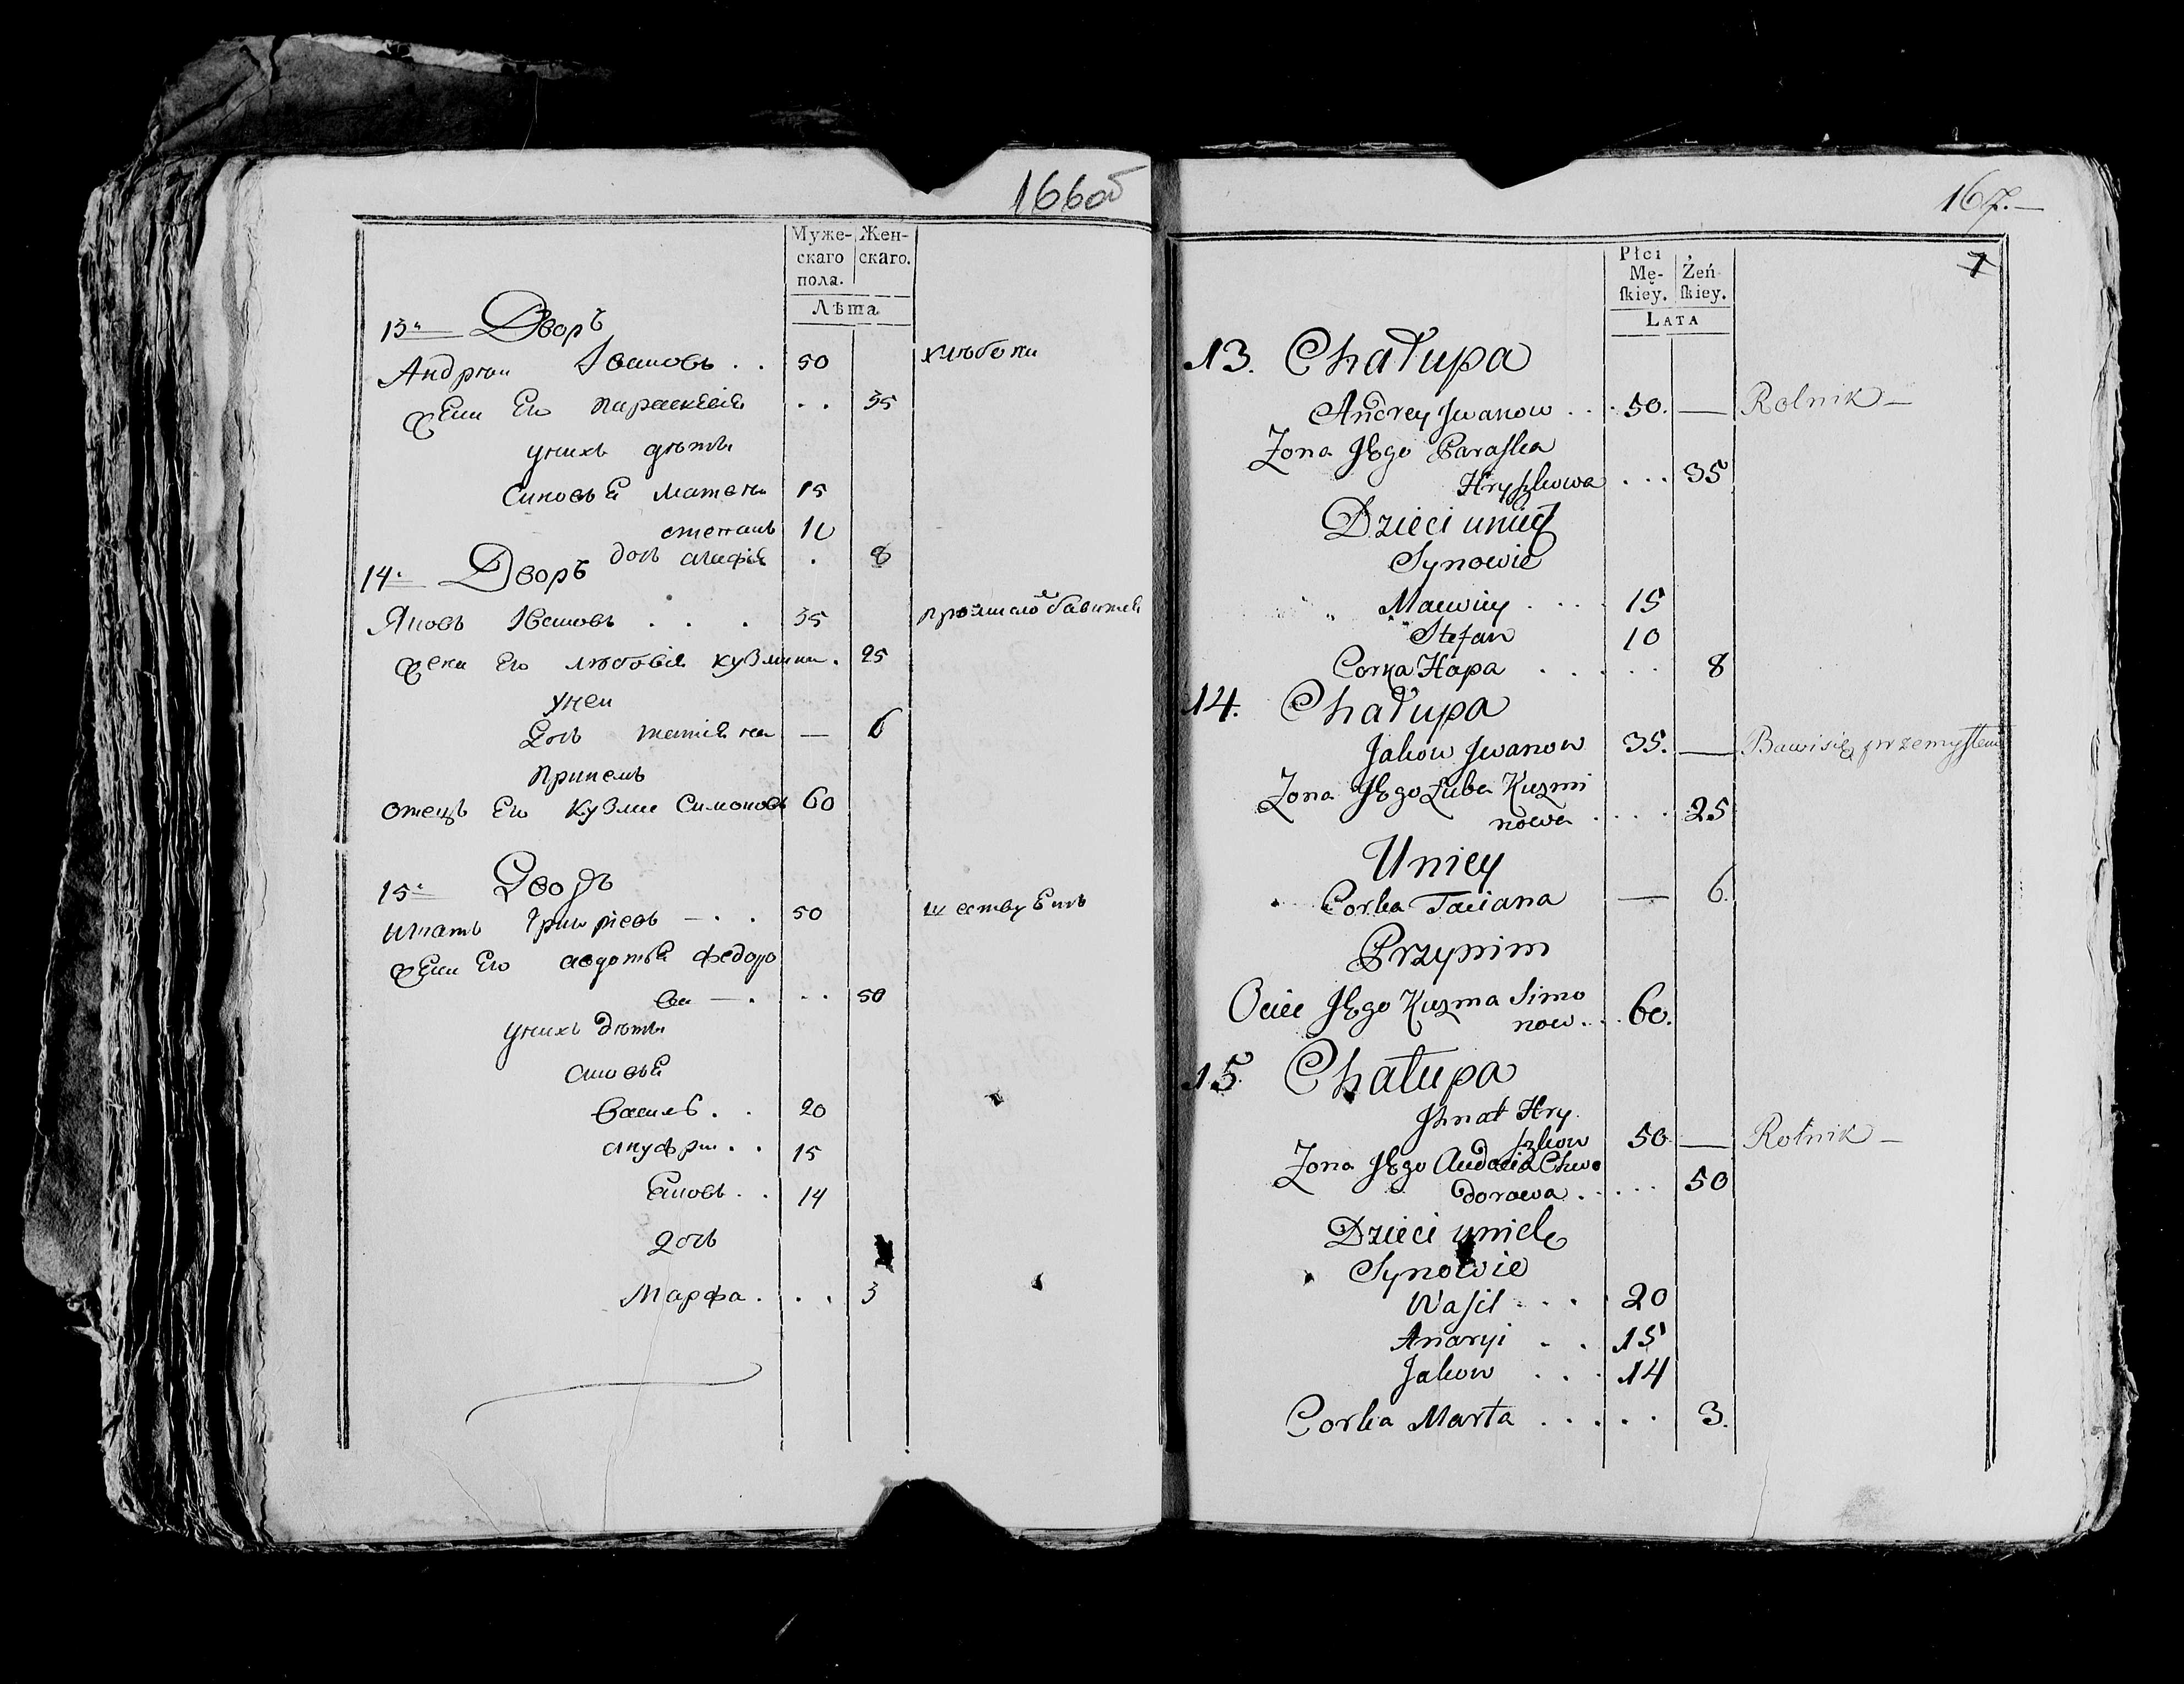 166об
Муже-
скаго
пола.
Жен-
скаго.
Лѣта
13. Дворъ
Андрѣи Ивановъ . . 50
Жена Его параскѣвія . . 35
унихъ дѣти
Синовьѣ Матвѣи 15
степанъ 10
дочь . 8
14. Дворъ
Яковъ Ивановъ . . . 35
Жена Его любовія кузмина . 25
унеи
Дочь татіяна — 6
принемъ
отецъ Его кузма Симоновъ 60
15. Дворъ
игнатъ Григоріевъ — . . 50
Жена Его авдотья федоро
ва — . . . 50
унихъ дѣти
синовьѣ
василь . . 20
ануфри . . 15
Яковъ . . 14
Дочь
Марфа . . . 3
167.—
7
Płci
Mę-
ſkiey.
Żeń-
ſkiey.
LATA
13. Chałupa
Andrey Jwanow . . . 50. — Rolnik —
Zona JEgo Paraſka
Hryſzkowa . . . 35
Dzieci unich
Synowie
Macwiey . . . 15
Stefan 10
Corka Hapa . . . . 8
14. Chałupa
Jakow Jwanow 35. — Bawi się przemyſłem
Zona JEgo Łuba Kuzmi
nowa . . . 25
Uniey
Corka Taciana — 6.
Przynim
Ociec JEgo Kuzma Simo
now . . . 60.
15. Chałupa
Jhnat Hry
ſzkow 50 — Rolnik —
Zona JEgo Audocia Chwe
dorowa . . . . . 50
Dzieci unich
Synowie
Waſil . . . . 20
Anaryi . . 15
Jakow . . . 14
Corka Marta . . . . . 3.